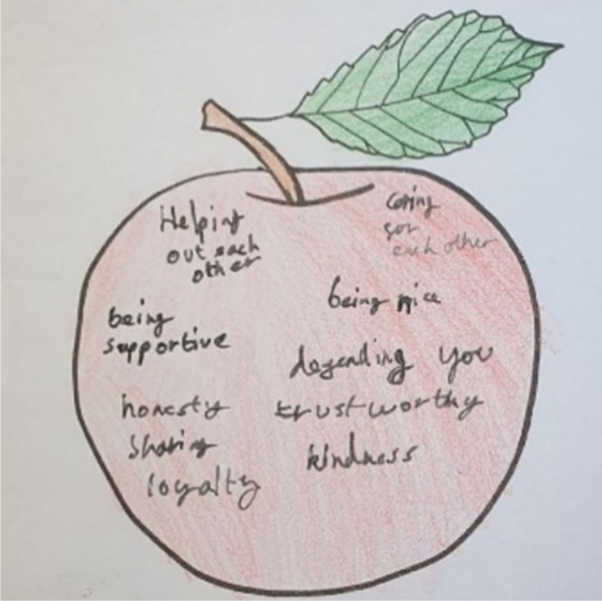 Helping
out each
other
caring
for
each other
being nice
being
supportive
defending you
honesty
trustworthy
sharing
kindness
loyalty